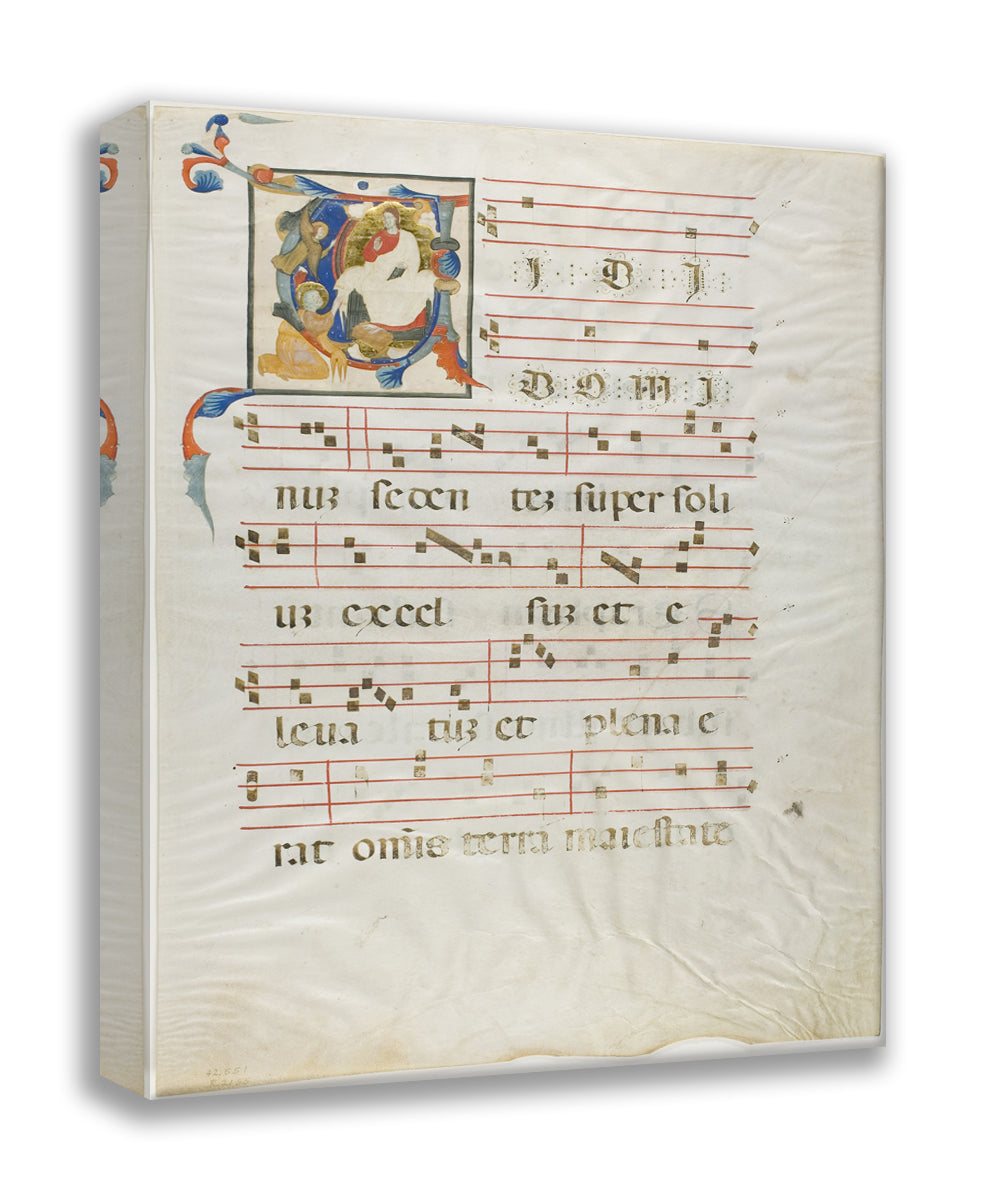 VIDI
DOMI
nuʒ seden teʒ super soli
uʒ excel suʒ et e
leua tuʒ et plena e
rat om̄is terra maiestate
42.551